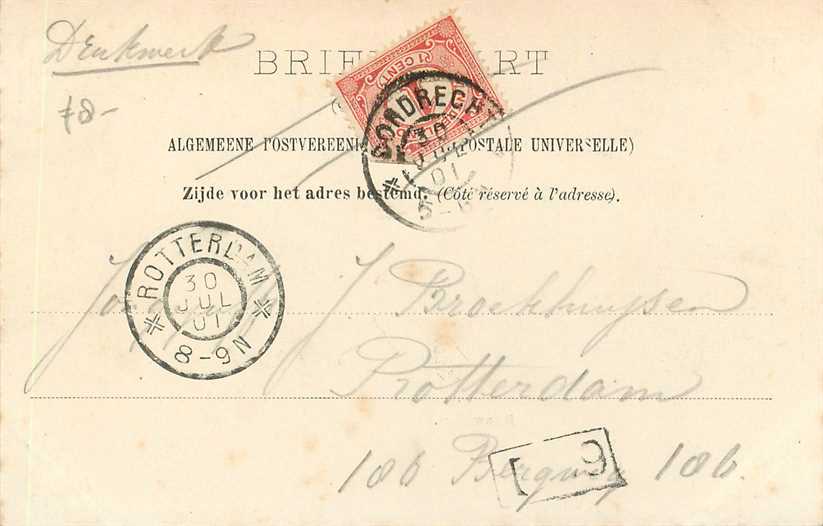 Drukwerk
78-
BRIEFKAART
1 CENT
ALGEMEENE POSTVEREENI (POSTALE UNIVERSELLE)
Zijde voor het adres bestemd. (Côté réservé à l'adresse).
DORDRECHT
30
JUL
01
ROTTERDAM
30
JUL
01
8-9N
J Broekhuijsen
Rotterdam
18b Bergweg 18b.